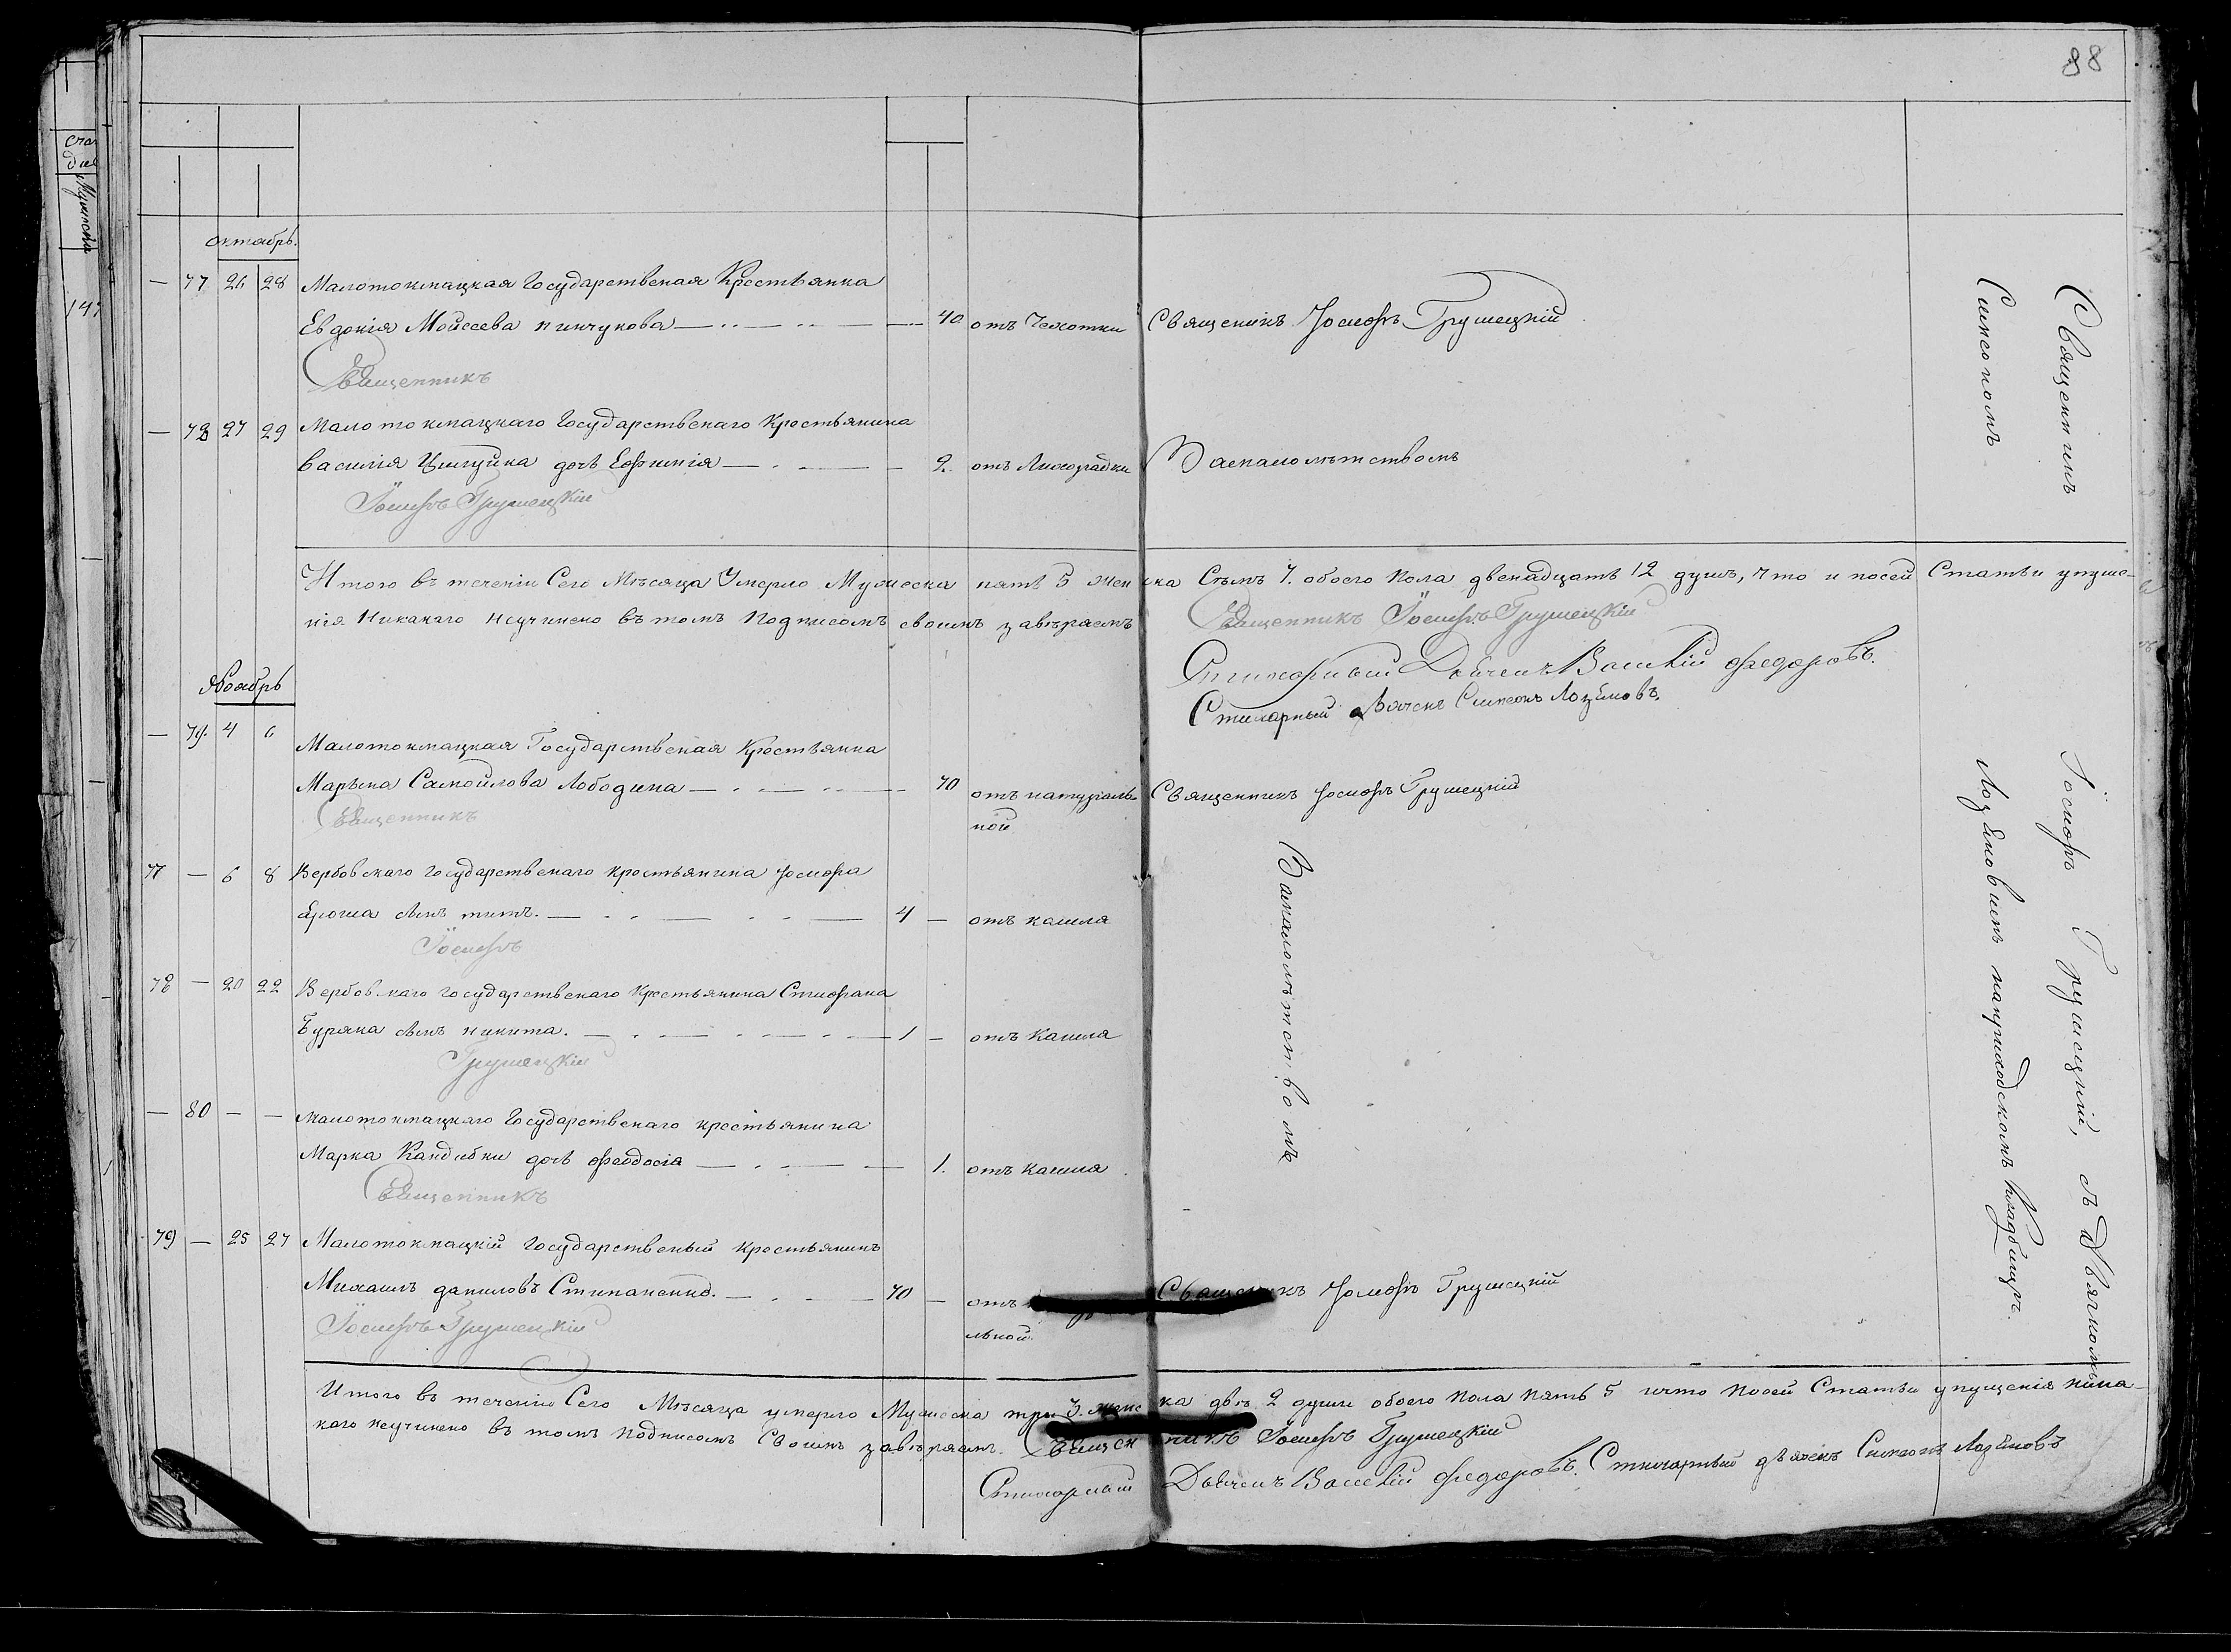 88
Октябрь.
— 77 26 28 Малотокмацкая Государственая Крестьянка
Евдокія Моисеева пинчукова — 40 отъ Чехотки Священикъ Іосифъ Грушецкій
Священникъ
— 78 27 29 Малотокмацкаго Государственаго Крестьянина
Василія дочь Ефимія — 2. отъ Лихорадки Занемотствомъ
Іосифъ Грушецкій
Итого въ теченіи Сего Мѣсяца Умерло Мужеска пять 5 женска Семь 7. обоего пола двенадцать 12 душъ, что и посей Статьи упуще-
нія Никакаго неучинено въ томъ Подписомъ своимъ завѣряемъ
Священникъ Іосифъ Грушецкій
Стихарный Дьячекъ Василій Федоровъ.
Стихарный Дьячекъ Симеонъ Лозѣновъ.
Ноябрь
— 79. 4 6 Малотокмацкая Государственая Крестьянка
Марьна Самойлова Лободина — 70 отъ натураль Священникъ Іосифъ Грушецкій
ной
Священникъ
77 — 6 8 Вербовскаго Государственаго крестьянина Іосифа
сынъ титъ. — 4 — отъ кашля
Іосифъ
78 — 20 22 Вербовскаго Государственаго Крестьянина Стефана
Буряка сынъ никита. — 1 — отъ Кашля
Грушецкій
— 80 — — Малотокмацкаго Государственаго крестьянина
Марка Кандибки дочь феодосія — 1. отъ кашля
Священникъ
79 — 25 27 Малотокмацкій Государственый крестьянинъ
Михаилъ даниловъ Стипаненко. — 70 — отъ Священикъ Іосифъ Грушецкій
льной.
Іосифъ Грушецкій
Итого въ теченіи Сего Мѣсяца умерло Мужеска три 3. женска двѣ 2 души обоего пола пять 5 ичто посей Статьи упущенія ника-
кого неучинено въ томъ Подписомъ Своимъ завѣряемъ. Священникъ Іосифъ Грушецкій
Стихарный Дьячекъ Василій Федоровъ. Стихарный дьячекъ Симеонъ Лозѣновъ
Священникъ Іосифъ Грушецкій, съ Дьячкомъ
Симеономъ Лозѣновимъ наприходскомъ Кладбищѣ.